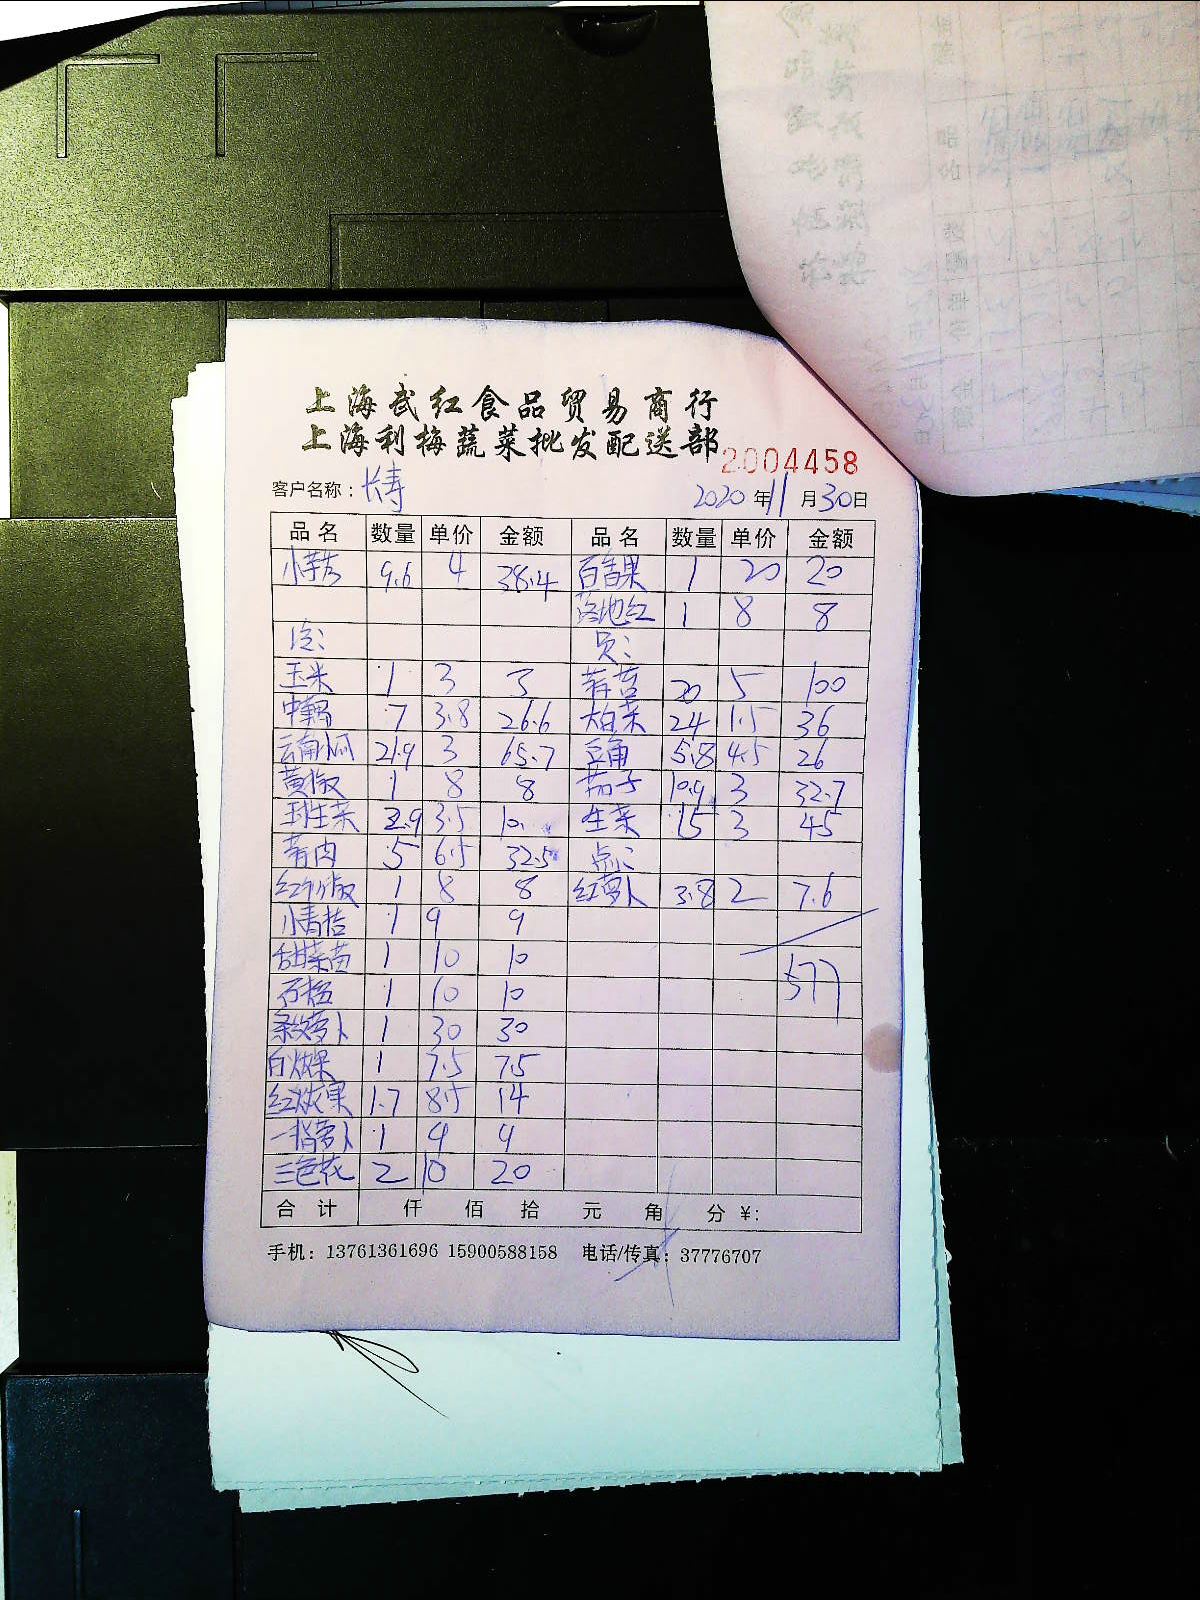 上海武红食品贸易商行
上海利梅蔬菜批发配送部
2004458
客户名称：长寿 2020年11月30日
品名 数量 单价 金额 品名 数量 单价 金额
小芋艿 9.6 4 38.4 百香果 1 20 20
落地红 1 8 8
冷： 员：
玉米 1 3 3 莴苣 20 5 100
中藕 7 3.8 26.6 大白菜 24 1.5 36
云南小瓜 21.9 3 65.7 豆角 5.8 4.5 26
黄椒 1 8 8 茄子 10.9 3 32.7
球生菜 2.9 3.5 10. 生菜 15 3 45
青肉 5 6.5 32.5 点：
红椒 1 8 8 红萝卜 3.8 2 7.6
小青桔 1 9 9
甜菜苗 1 10 10 577
石榴 1 10 10
萝卜 1 30 30
白火龙果 1 7.5 7.5
红火龙果 1.7 8.5 14
萝卜 1 9 9
三色花 2 10 20
合计 仟 佰 拾 元 角 分 ¥:
手机：13761361696 15900588158 电话/传真：37776707